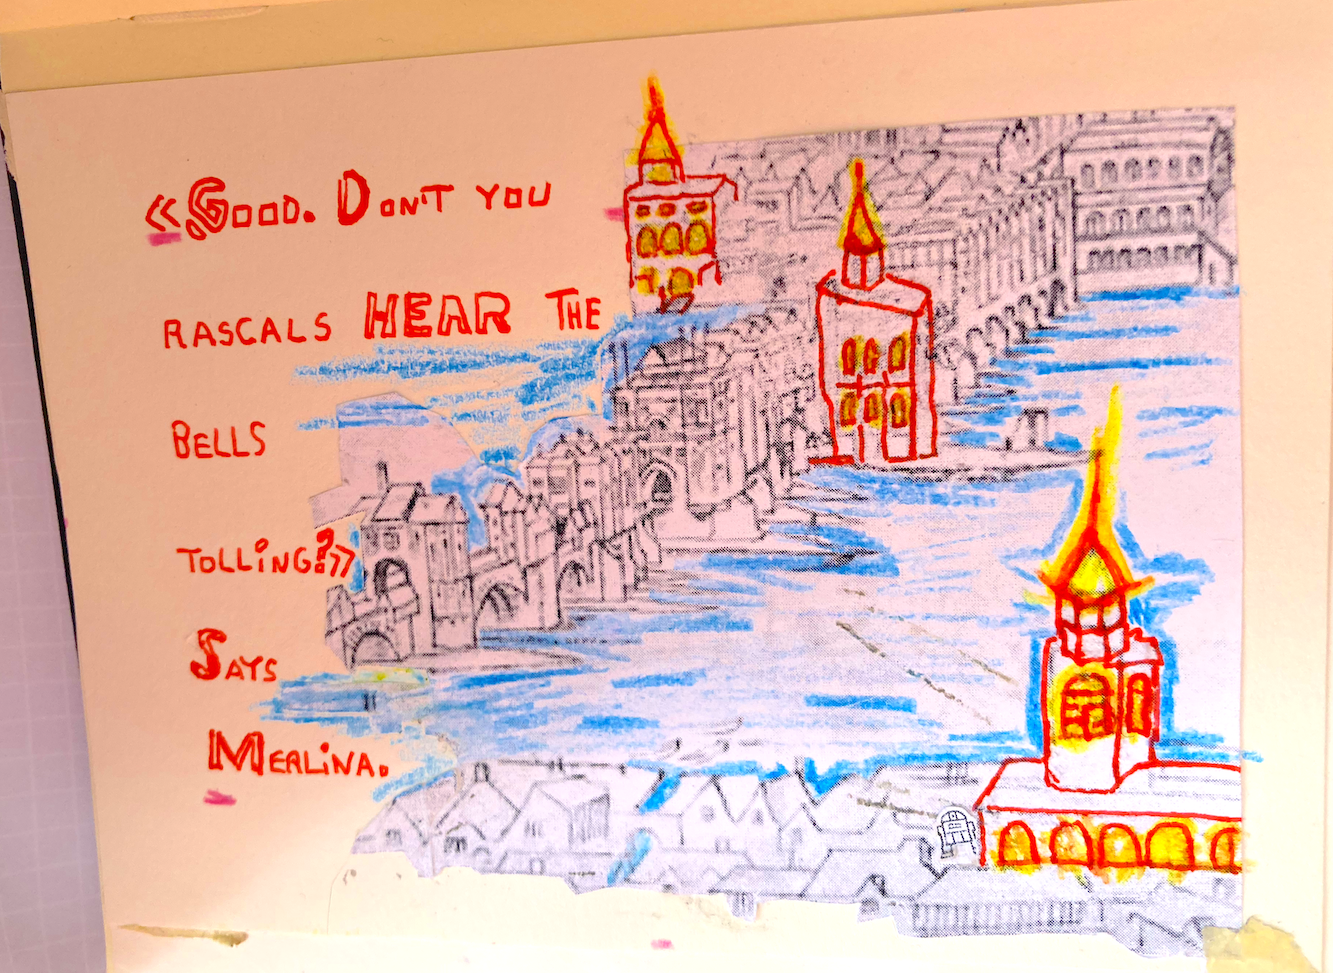 «GOOD. DON'T YOU
RASCALS HEAR THE
BELLS
TOLLING?»
SAYS
MERLINA.